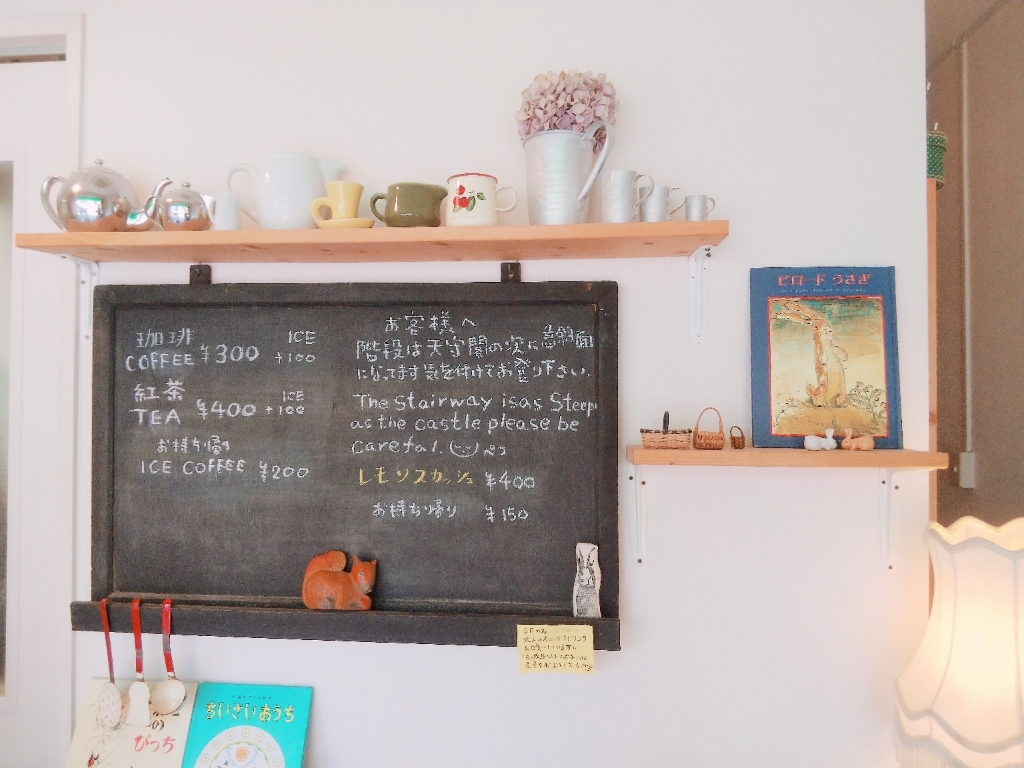 珈琲 ICE
COFFEE ¥300 +100
紅茶 ICE
TEA ¥400 +100
お持ち帰り
ICE COFFEE ¥200
お客様へ
階段は天守閣の次に急斜面
になってます気を付けてお登り下さい。
The Stairway isas Steep
as the castle please be
careful.
レモンスカッシュ ¥400
お持ち帰り ¥150
ビロードうさぎ
の
ぴっち
ちいさいおうち